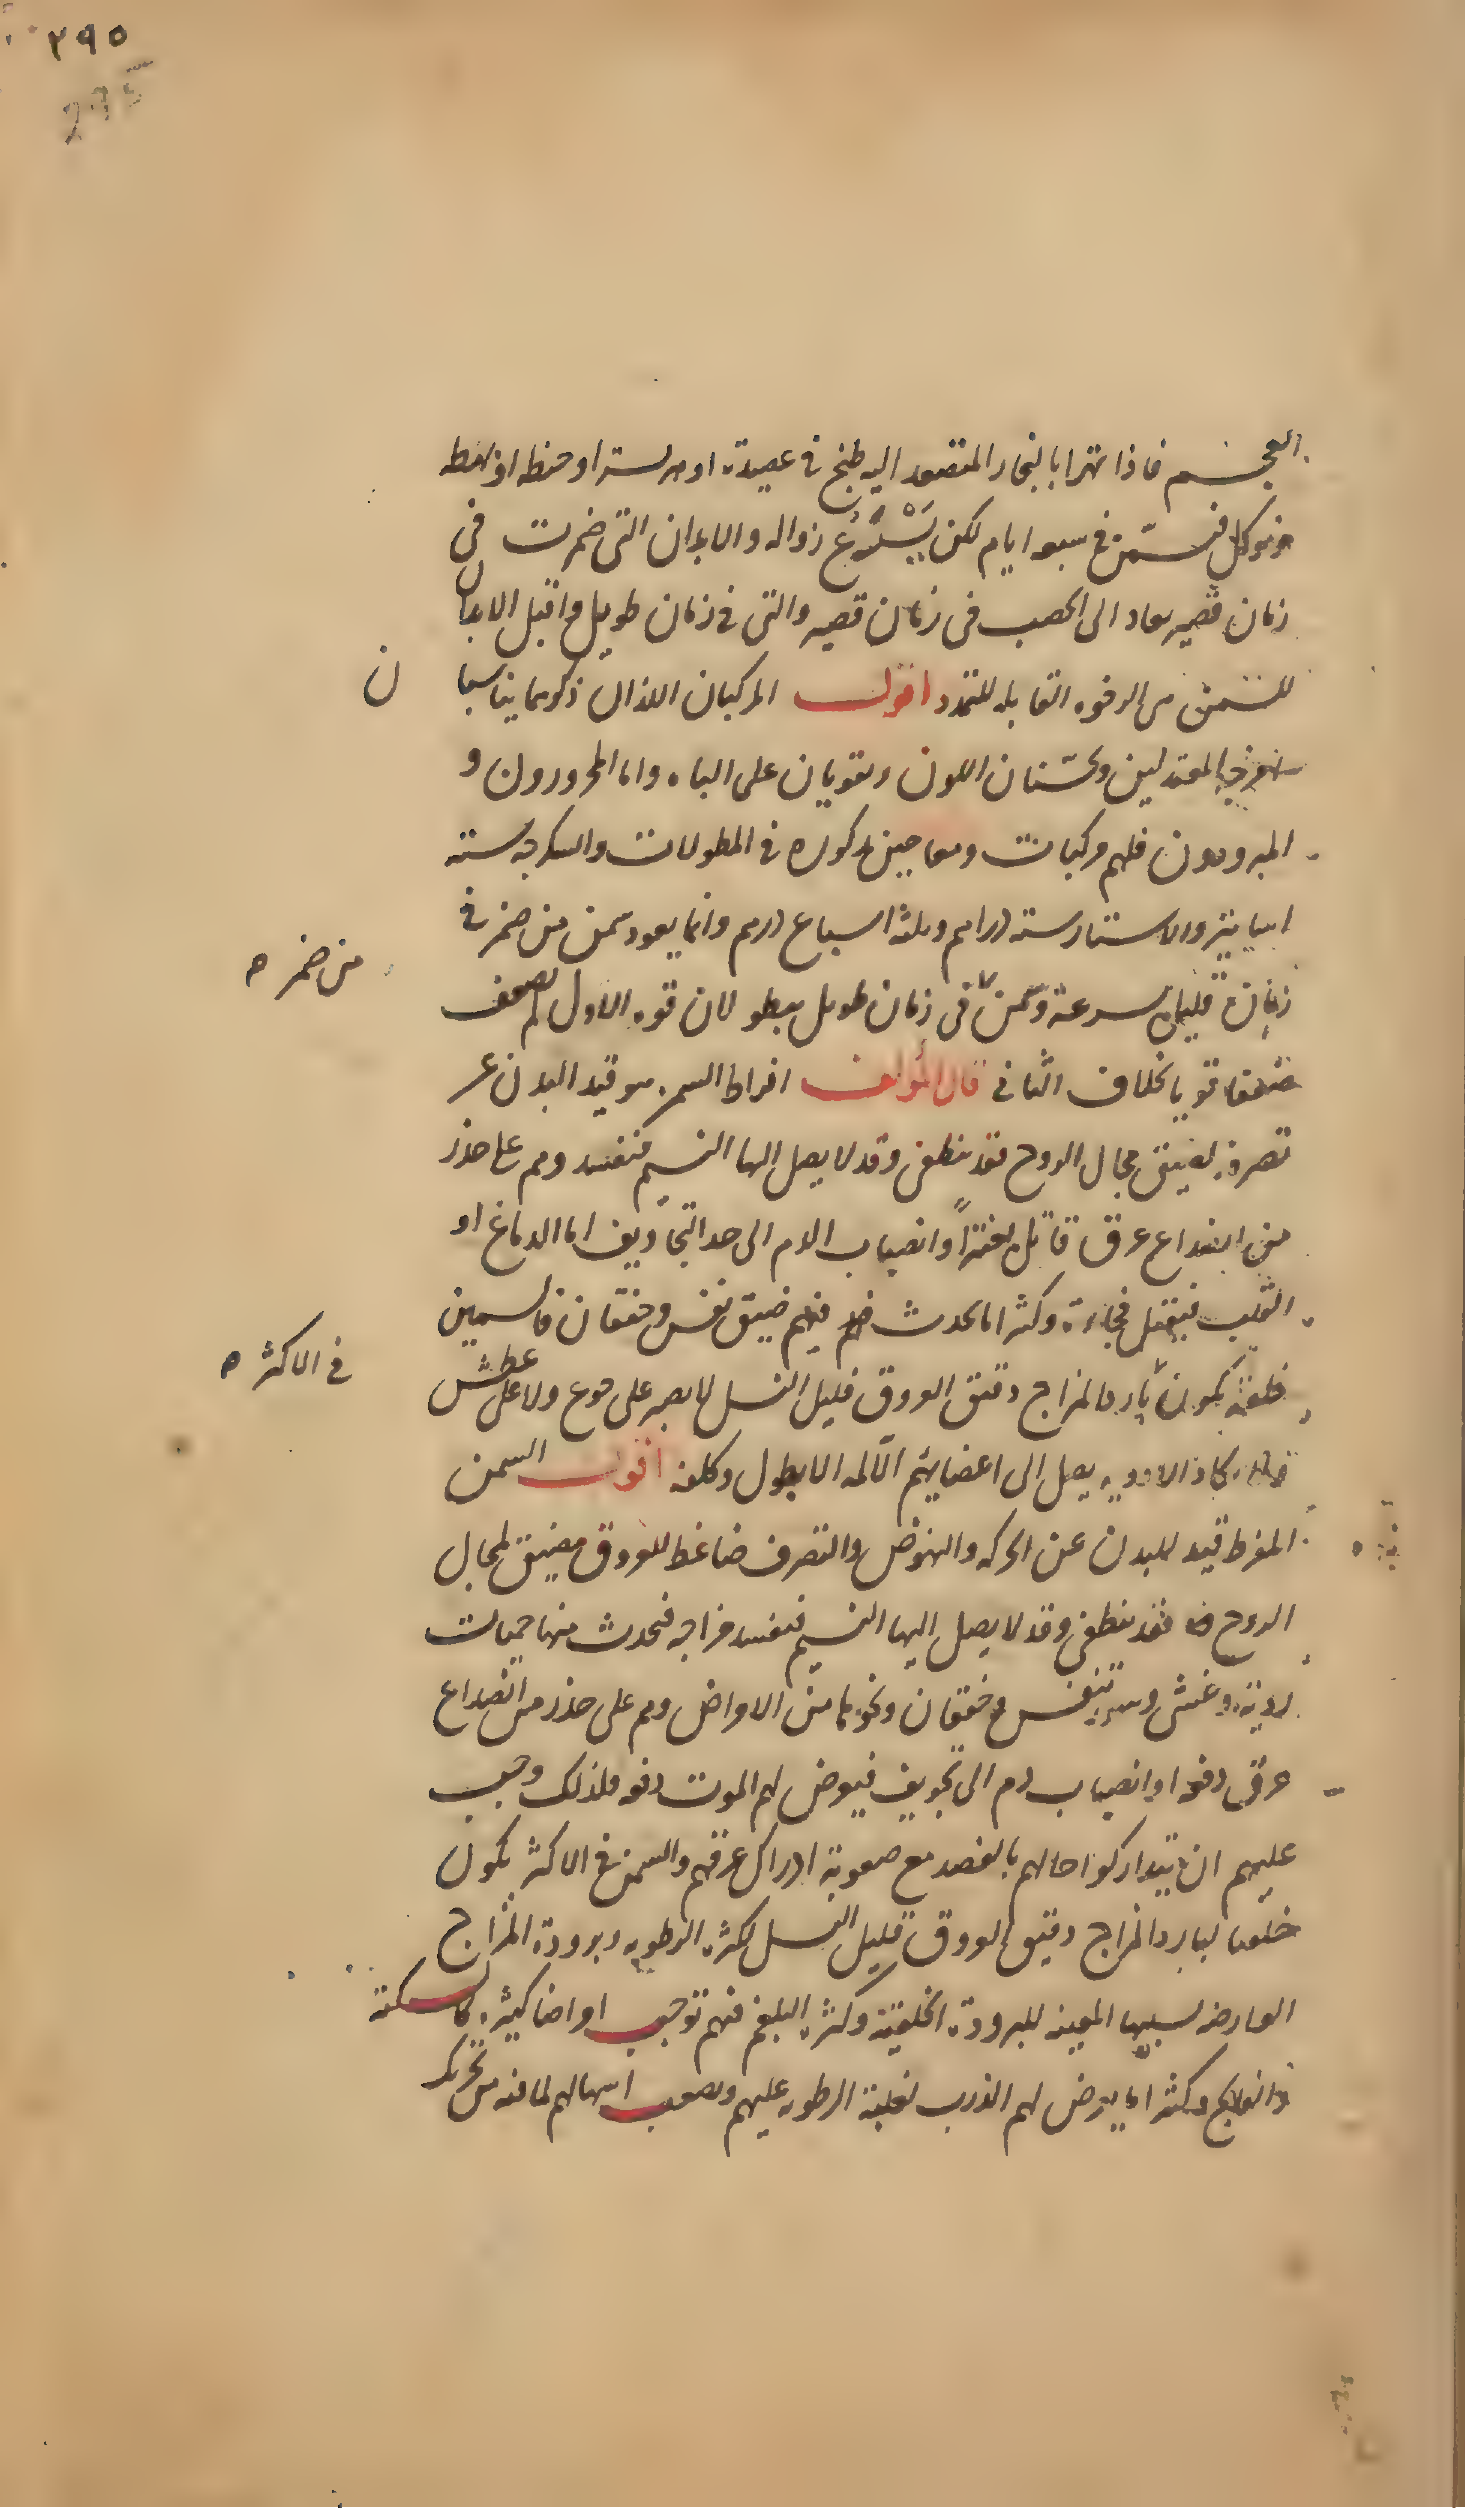 ٢٩٥
295
العجم فاذا تهرا بالبخار المتصعد اليه طبخ في عصيدة او هريسة او حنطه او بهطه
ويوكل فيسمن في سبعه ايام لكن يسرع زواله والابدان التي ضمرت في
زمان قصير يعاد الى الخصب في زمان قصير والتي في زمان طويل واقبل الابدان
للتسمن الرخوه القابله للتمدد اقول المركبان اللذان ذكرهما يناسبان
المعتدلين ويحسنان اللون ويقويان على الباه واما المحرورون و
المبرودون فلهم مركبات ومعاجين مذكوره في المطولات والسكرجه ستة
اساتير والاستار ستة دراهم وثلثة اسباع درهم وانما يعود سمن من ضمر في
من ضمر ه
زمان قليل بسرعة وسمن في زمان طويل ببطو لان قوه الاول لم تضعف
ضعفا قويا بخلاف الثاني قال المؤلف افراط السمن هو قيد البدن عن
تصرفه لضيق مجال الروح فقد ينطفى وقد لا يصل اليها النسيم فتفسد وهم على حذر
من انصداع عرق قاتل بغتة او انصباب الدم الى احد التجاويف اما الدماغ او
القلب فيقتل فجاءة وكثيرا ما يحدث فيهم ضيق نفس وخفقان فالسمين
في الاكثر ه
خلقة يكون بارد المزاج دقيق العروق قليل النسل لا يصبر على جوع ولا على عطش
ولا يكاد الادويه يصل الى اعضايهم الآلمه الا بطول وكلفه اقول السمن
المفرط قيد للبدن عن الحركه والنهوض والتصرف ضاغط للعروق مضيق لمجال
الروح فقد ينطفى وقد لا يصل اليها النسيم فيفسد مزاجه فتحدث منها حميات
ردية وغشى وسو تنفس وخفقان ونحوهما من الامراض وهم على حذر من انصداع
عرق دفعه او انصباب دم الى تجويف فيعرض لهم الموت دفعه فلذلك وجب
عليهم ان يتداركوا حالهم بالفصد مع صعوبة ادراك عرقهم والسمن في الاكثر يكون
خلقيا لبارد المزاج دقيق العروق قليل النسل لكثرة الرطوبه وبرودة المزاج
العارضه لسببها المعينه للبرودة الخلقية وكثرة البلغم فيهم توجب امراضا كثيرة كالسكتة
والفالج وكثيرا ما يعرض لهم الذرب لغلبة الرطوبه عليهم ويصعب اسهالهم لما فيه من تحريك